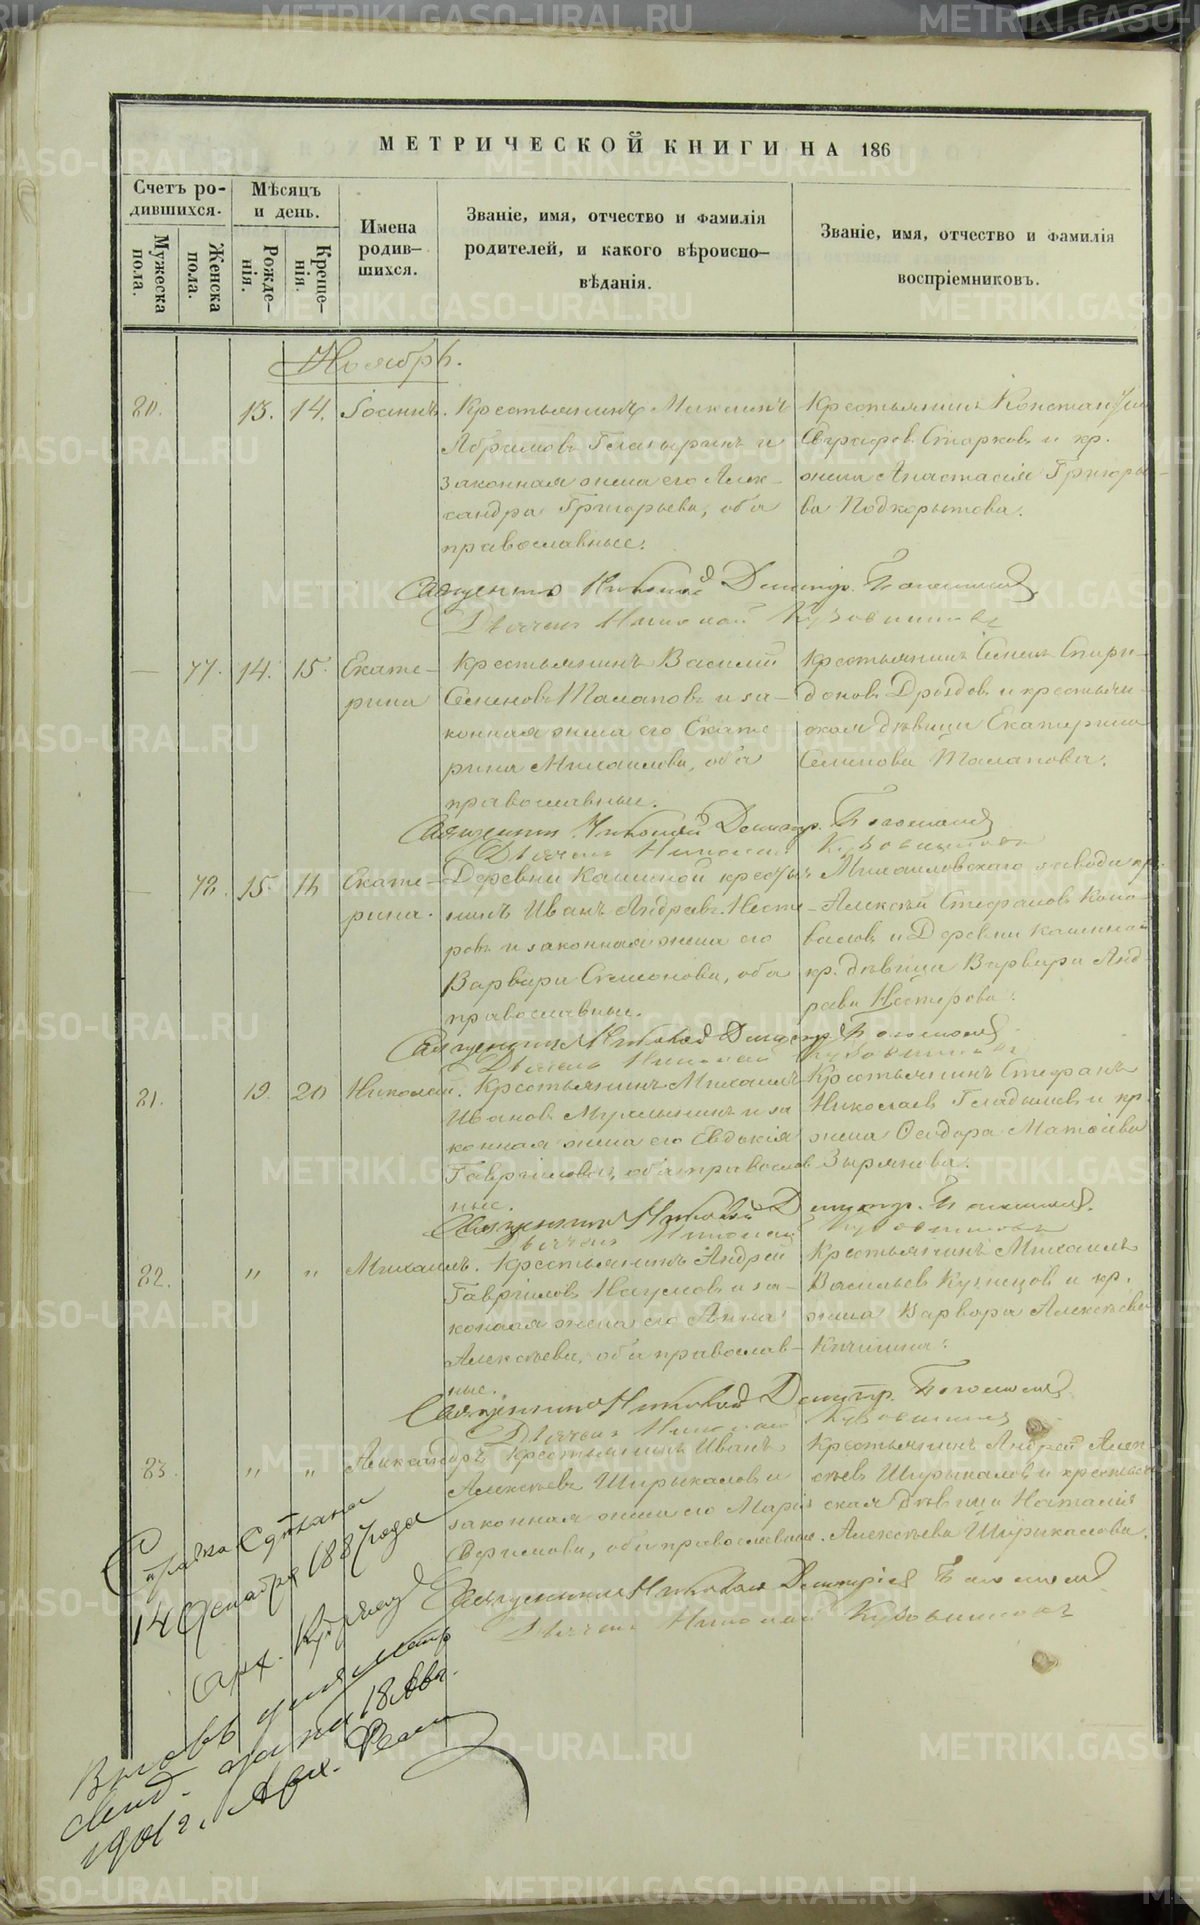 МЕТРИЧЕСКОЙ КНИГИ НА 186
Счетъ ро-
дившихся.
Мѣсяцъ
и день.
Мужеска
пола.
Женска
пола.
Рожде-
нія.
Креще-
нія.
Имена
родив-
шихся.
Званіе, имя, отчество и фамилія
родителей, и какого вѣроиспо-
вѣданія.
Званіе, имя, отчество и фамилія
воспріемниковъ.
Ноябрь.
80. 13. 14. Іоаннъ.
Крестьянинъ Михаилъ
Абрамовъ Глазыринъ и
законная жена его Алек-
сандра Григорьева, оба
православные.
Крестьянинъ Константин
Старковъ и кр.
жена Анастасія Григорье-
ва Подкорытова.
Священникъ Николай Димитр. Богомолов
Дьячекъ Николай Кузовниковъ
— 77. 14. 15. Екате-
рина
Крестьянинъ Василій
Семеновъ Талаповъ и за-
конная жена его Екате
рина Михаилова, оба
православные.
Крестьянинъ Семенъ Спири-
доновъ Дроздовъ и крестьян-
ская дѣвица Екатерина
Семенова Талапова.
Священникъ Николай Димитр. Богомолов
Дьячекъ Николай Кузовниковъ
— 78. 15. 16 Екате-
рина.
Деревни Кашиной кресть
нинъ Иванъ Андреевъ Несте-
ровъ и законная жена его
Варвара Семенова, оба
православные.
Михаиловскаго завода кр.
Алексѣй Стефановъ Коно-
валовъ и Деревни Кашиной
кр. дѣвица Варвара Анд-
реева Нестерова.
Священникъ Николай Димитр. Богомолов
Дьячекъ Николай Кузовниковъ
81. 19. 20 Николай.
Крестьянинъ Михаилъ
Ивановъ и за
конная жена его Евдокія
Гаврилова, оба православ
ные.
Крестьянинъ Стефанъ
Николаевъ Гладышевъ и кр.
жена Матѳіева
Зырянова.
Священникъ Николай Димитр. Богомолов
Дьячекъ Николай Кузовниковъ
82. " " Михаилъ.
Крестьянинъ Андрей
Гавриловъ Наумовъ и за-
конная жена его Анна
Алексѣева, оба православ-
ные.
Крестьянинъ Михаилъ
Васильевъ Кузнецовъ и кр.
жена Варвара Алексѣева
Священникъ Николай Димитр. Богомолов
Дьячекъ Николай Кузовниковъ
83. " " Александръ
Крестьянинъ Иванъ
Алексѣевъ Ширыкаловъ и
законная жена его Марія
, оба православные.
Крестьянинъ Андрей Алек-
сѣевъ Ширыкаловъ и крестьян
ская дѣвица Наталія
Алексѣева Ширыкалова.
Священникъ Николай Димитрiев Богомолов
Дьячекъ Николай Кузовниковъ
Справка сдѣлана
14 Декабря 1887 года
Арх.
Вновь
на 18 Авг.
1901 г. Арх.
METRIKI.GASO-URAL.RU